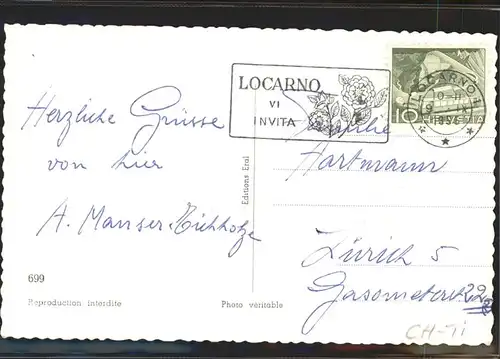 LOCARNO
VI
INVITA
LOCARNO
10-11
1954
10 HELVETIA
Herzliche Grüsse
von hier
A. Manser-Eichholze
Familie
Hartmann
Zürich 5
Gasometerstr. 22
Editions Eral
699
Reproduction interdite
Photo véritable
CH-TI